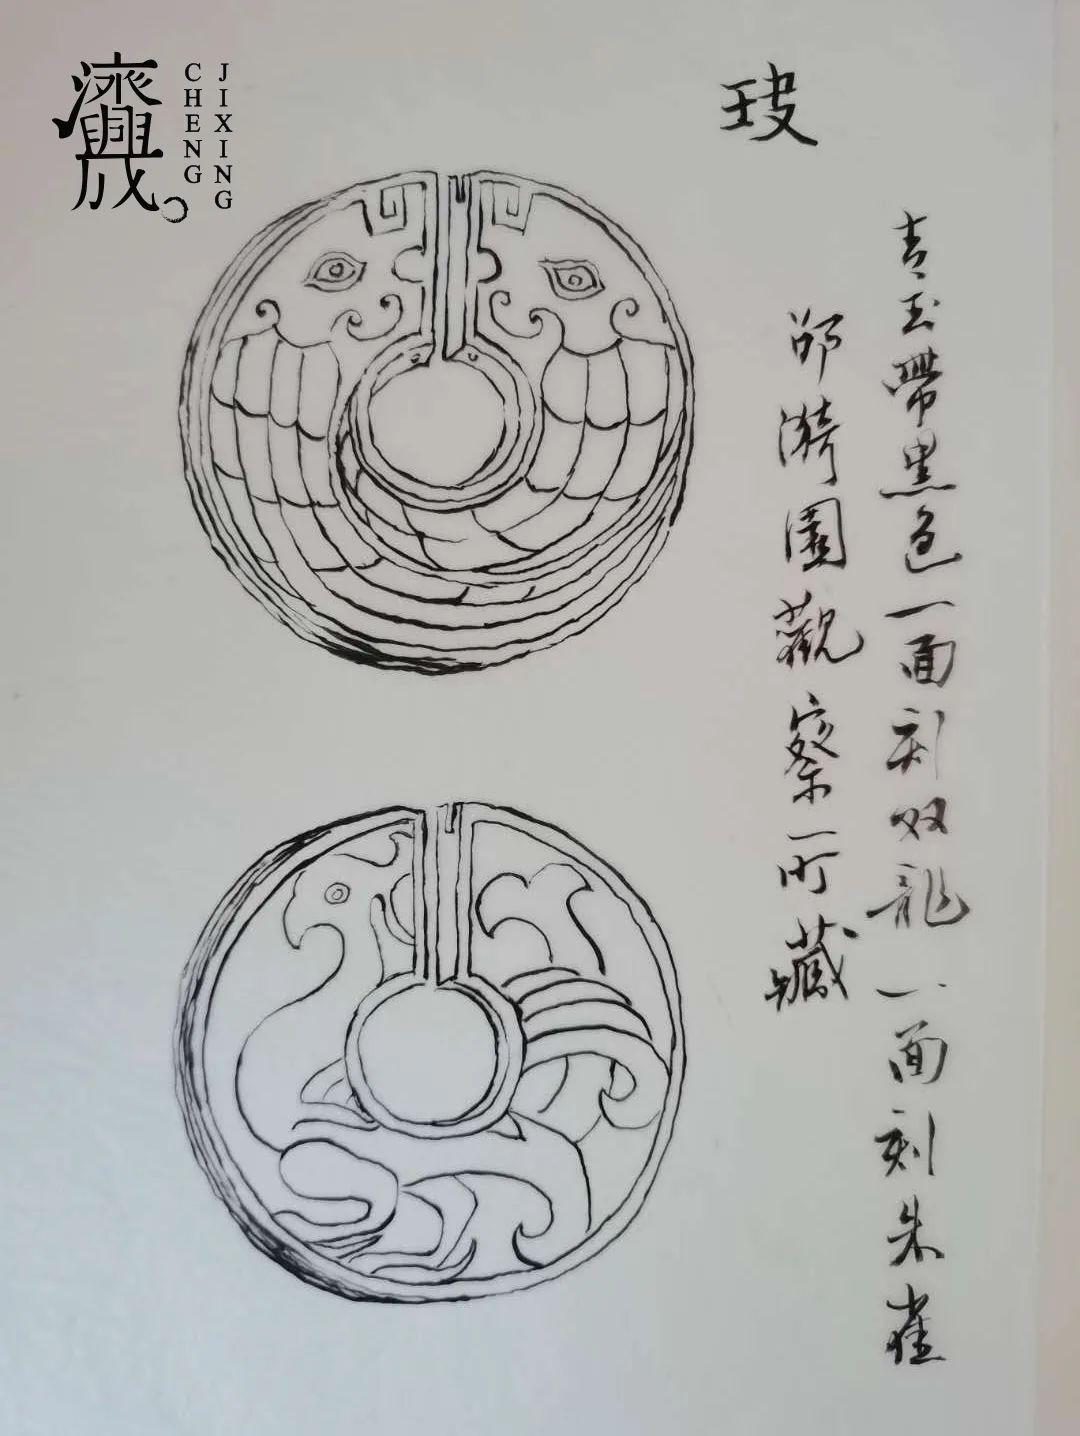 濟興成。
JIXING
CHENG
玦
青玉帶黑色一面刻双龍一面刻朱雀
邵漪園觀察所藏